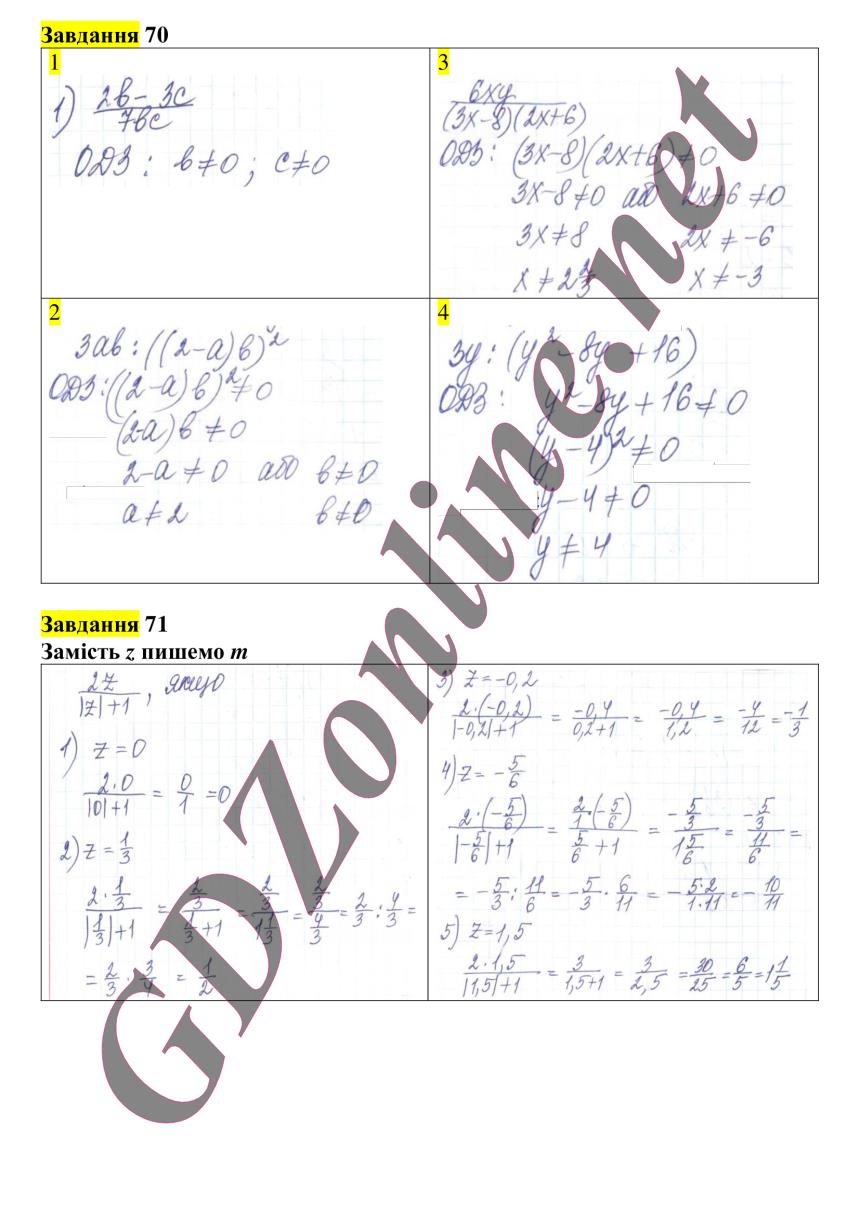 Завдання 70
1
1) (2в - 3с)/(7вс)
ОДЗ : в≠0 ; с≠0
3
6xy/((3x-8)(2x+6))
ОДЗ: (3x-8)(2x+6)≠0
3x-8≠0 або 2x+6≠0
3x≠8 2x≠-6
x≠2 2/3 x≠-3
2
3ав : ((2-а)в)^2
ОДЗ: ((2-а)в)^2≠0
(2-а)в≠0
2-а≠0 або в≠0
а≠2 в≠0
4
3y : (y^2-8y+16)
ОДЗ: y^2-8y+16≠0
(y-4)^2≠0
y-4≠0
y≠4
Завдання 71
Замість z пишемо m
2z/(|z|+1), якщо
1) z=0
(2·0)/(|0|+1) = 0/1 =0
2) z=1/3
(2·1/3)/(|1/3|+1) = (2/3)/(1/3+1) = (2/3)/(1 1/3) = (2/3)/(4/3) = 2/3 : 4/3 =
= 2/3 · 3/4 = 1/2
3) z=-0,2
(2·(-0,2))/(|-0,2|+1) = -0,4/(0,2+1) = -0,4/1,2 = -4/12 = -1/3
4) z=-5/6
(2·(-5/6))/(|-5/6|+1) = (2/1·(-5/6))/(5/6+1) = (-5/3)/(1 5/6) = (-5/3)/(11/6) =
= -5/3 : 11/6 = -5/3 · 6/11 = -(5·2)/(1·11) = -10/11
5) z=1,5
(2·1,5)/(|1,5|+1) = 3/(1,5+1) = 3/2,5 = 30/25 = 6/5 = 1 1/5
GDZonline.net